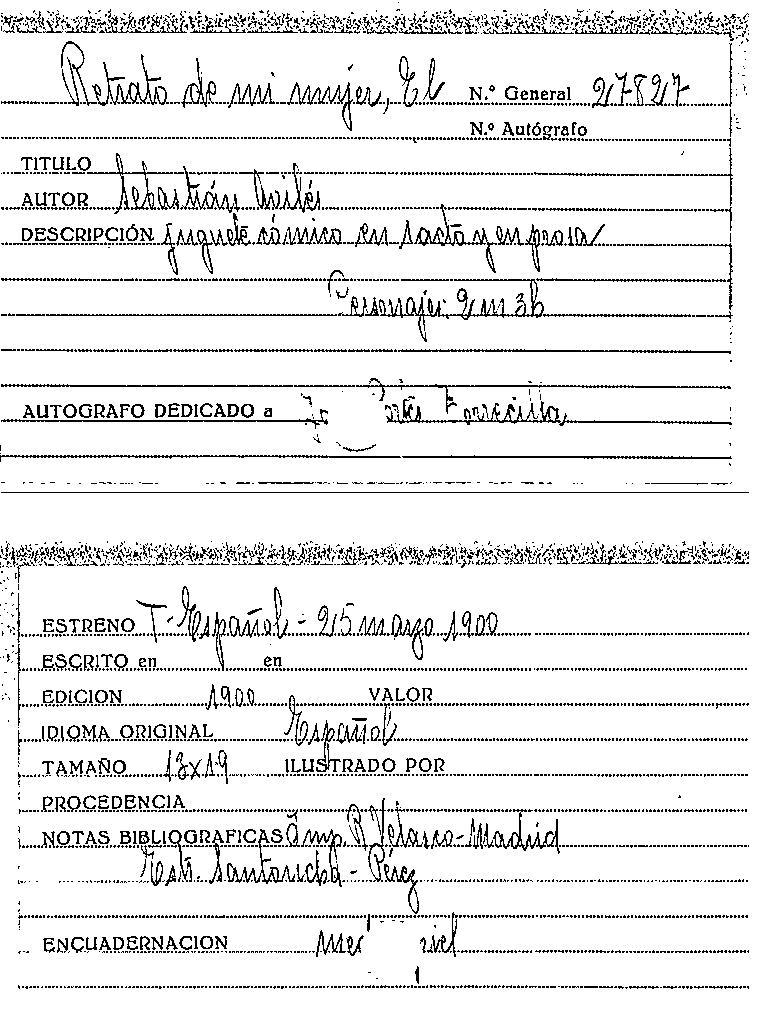 Retrato de mi mujer, El N.º General 27827
N.º Autógrafo
TITULO
AUTOR Sebastián Avilés
DESCRIPCIÓN Juguete cómico en 1 acto y en prosa
Personajes: 2 m 3h
AUTOGRAFO DEDICADO a Torrecilla
ESTRENO T- Español - 25 marzo 1900
ESCRITO en en
EDICION 1900 VALOR
IDIOMA ORIGINAL Español
TAMAÑO 13x19 ILUSTRADO POR
PROCEDENCIA
NOTAS BIBLIOGRAFICAS Imp. R. Velasco - Madrid
Estr. - Pérez
ENCUADERNACION